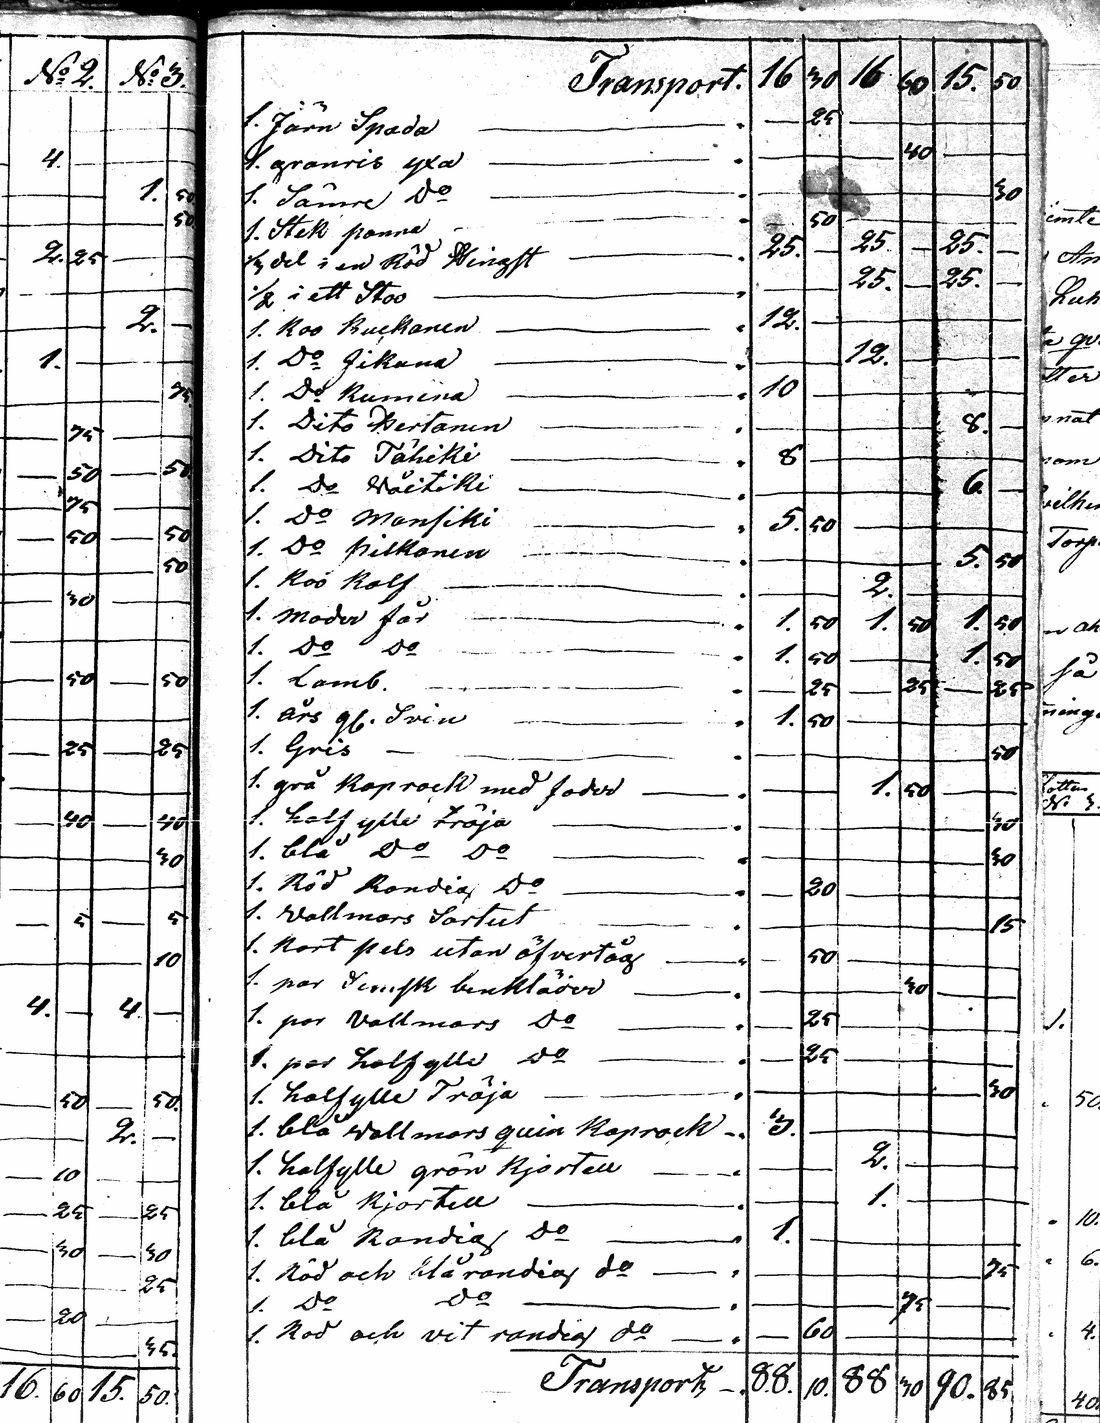 No 2. No 3.
4.
1. 50
50
2. 25
2.
1.
75
75
50 50
75
50 50
50
30
50 50
25 25
40 40
30
5 5
10
4. 4.
50 50.
2.
10
25 25
30 30
25
20
35.
16. 60 15. 50.
Transport. 16 30 16 60 15. 50
1. Järn Spada 25
1. granris yxa 40
1. Sämre Do 30
1. Stek panna 50
⅓ del i en Röd Hingst 25. 25. 25.
½ i ett Stoo 25. 25.
1. Koo Kuckanen 12.
1. Do Jikana 12.
1. Do Rumina 10
1. Dito Hertanen 8.
1. Dito Tähiki 8
1. Do Wäitiki 6
1. Do Mansiki 5. 50
1. Do Pilkanen 5. 50
1. Koo Kalf 2.
1. Moder får 1. 50 1. 50 1. 50
1. Do Do 1. 50 1. 50
1. Lamb. 25 25 25
1. års gl. Svin 1. 50
1. Gris 50
1. grå Kaprock med foder 1. 50
1. halfylle Tröja 30
1. blå Do Do 30
1. Röd Randig Do 20
1. Vallmars Sortut 15
1. Kort pels utan öfvertåg 50
1. par Semsk benkläder 30
1. par Vallmars Do 25
1. par halfylle Do 25
1. halfylle Tröja 30
1. blå Wallmars quin Kaprock 3.
1. halfylle grön Kjortell 2.
1. blå Kjortell 1.
1. blå Randig Do 1.
1. Röd och blårandig do 75
1. Do Do 75
1. Röd och vit randig do 60
Transport 88. 10. 88 30 90. 85